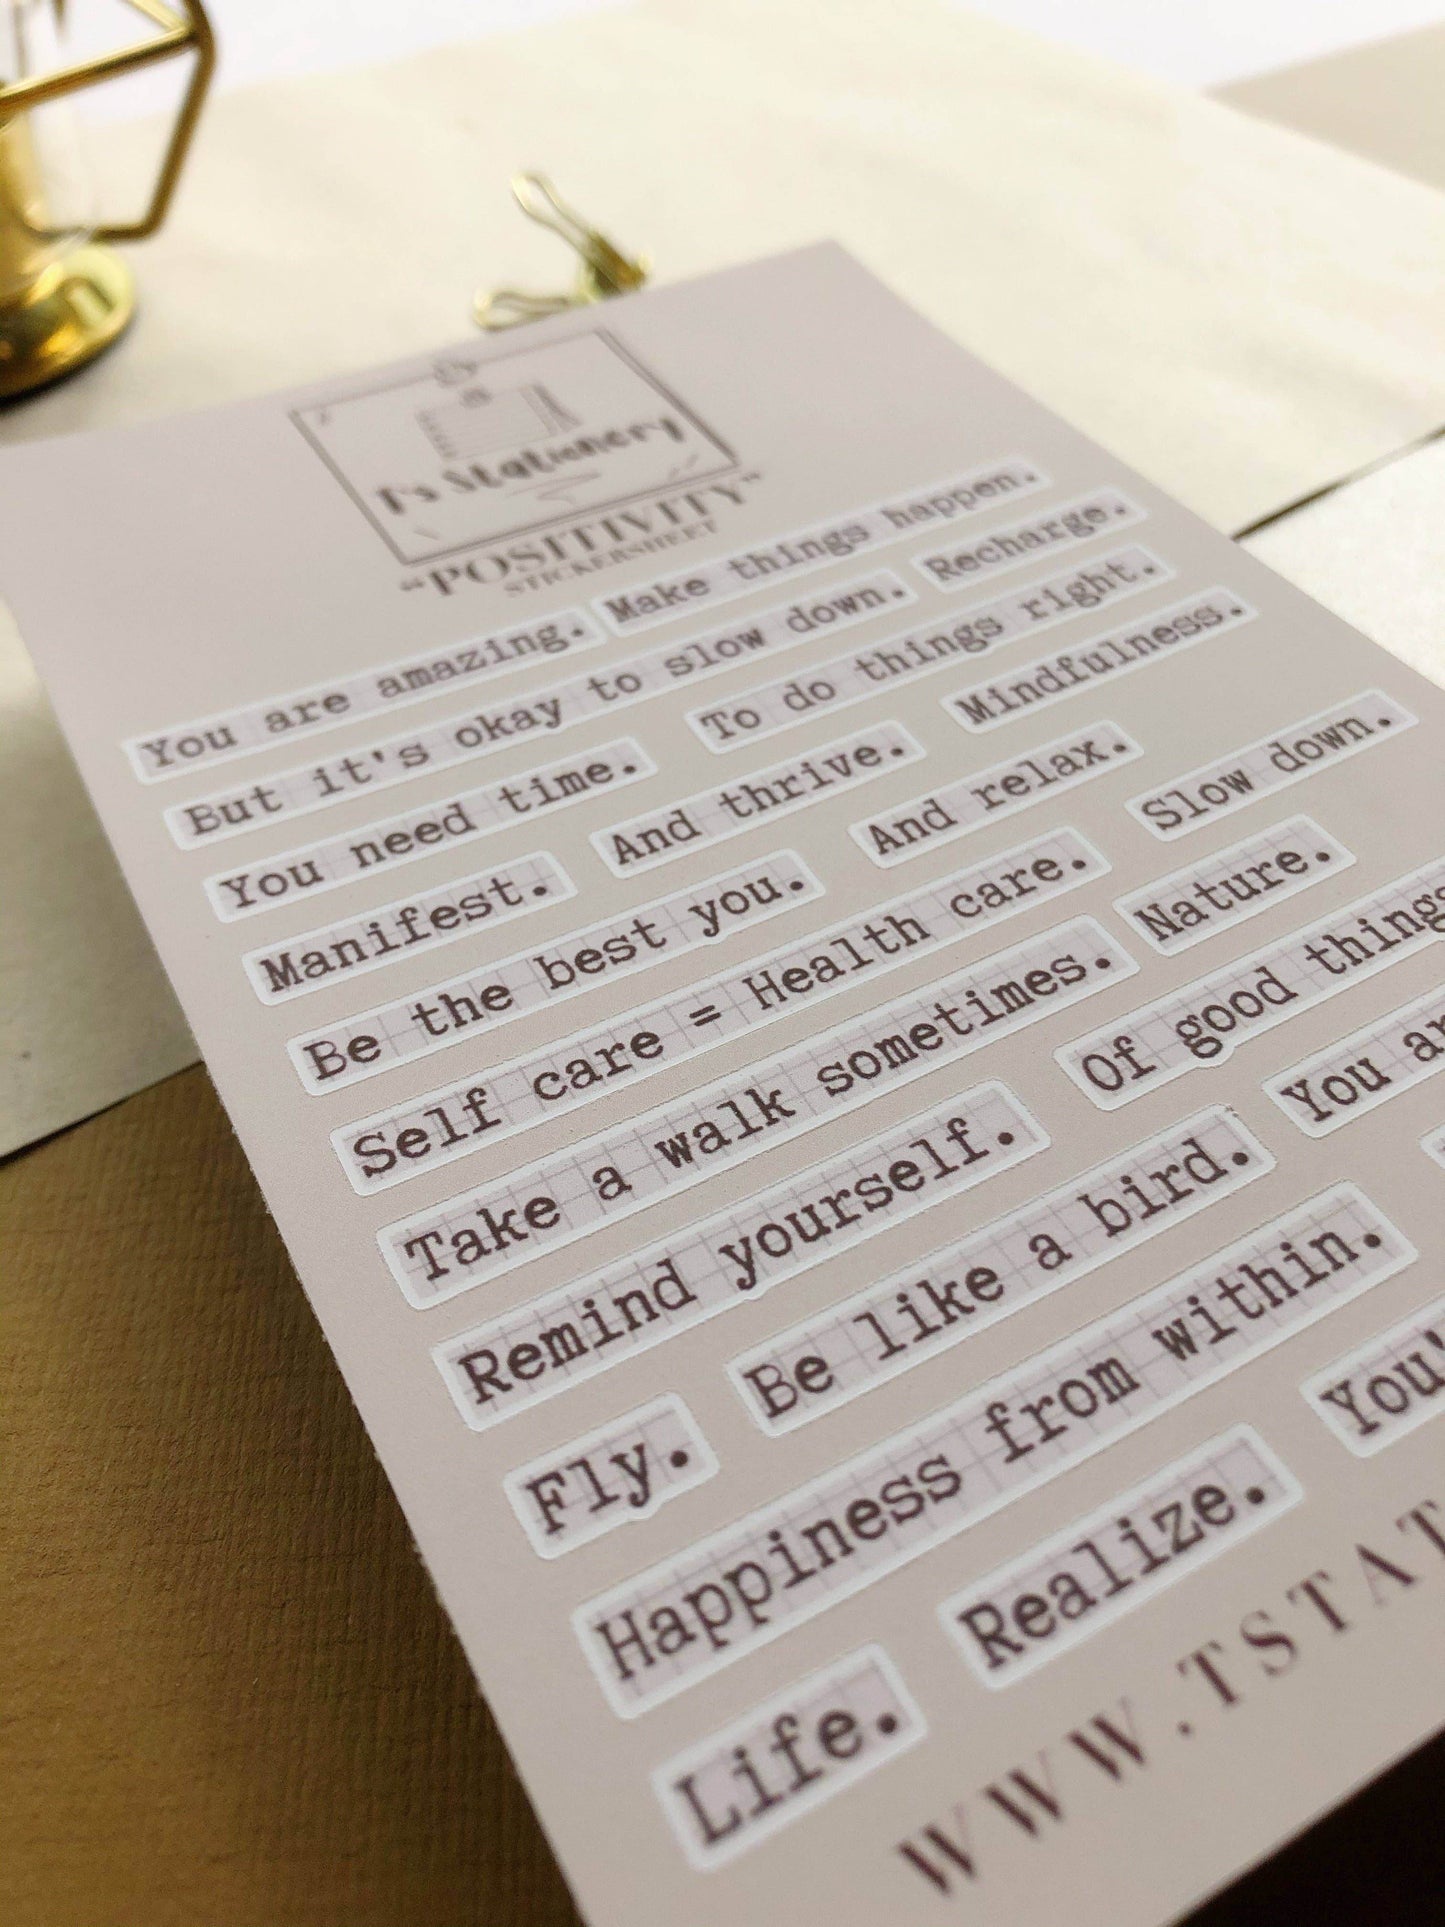 T's Stationery
"POSITIVITY"
STICKERSHEET
You are amazing. Make things happen.
But it's okay to slow down. Recharge.
You need time. To do things right.
Manifest. And thrive. Mindfulness.
Be the best you. And relax. Slow down.
Self care = Health care. Nature.
Take a walk sometimes. Of good things
Remind yourself. You
Fly. Be like a bird.
Happiness from within.
Life. Realize.
WWW.TSTAT